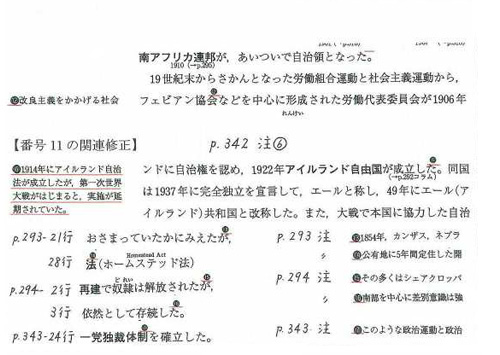 南アフリカ連邦が，あいついで自治領となった。
1910 (→p.295)
19世紀末からさかんとなった労働組合運動と社会主義運動から，
改良主義をかかげる社会 フェビアン協会などを中心に形成された労働代表委員会が1906年
れんけい
【番号11の関連修正】 p.342 注⑥
1914年にアイルランド自治 ンドに自治権を認め，1922年アイルランド自由国が成立した。同国
(→p.292コラム)
法が成立したが，第一次世界 は1937年に完全独立を宣言して，エールと称し，49年にエール(ア
大戦がはじまると，実施が延 イルランド)共和国と改称した。また，大戦で本国に協力した自治
期されていた。
p.293-21行 おさまっていたかにみえたが， p.293 注 1854年，カンザス，ネブラ
Homestead Act
28行 法(ホームステッド法) 〃 公有地に5年間定住した開
どれい
p.294- 2行 再建で奴隷は解放されたが， p.294 注 その多くはシェアクロッパ
3行 依然として存続した。 〃 南部を中心に差別意識は強
p.343-24行 一党独裁体制を確立した。 p.343 注 このような政治運動と政治